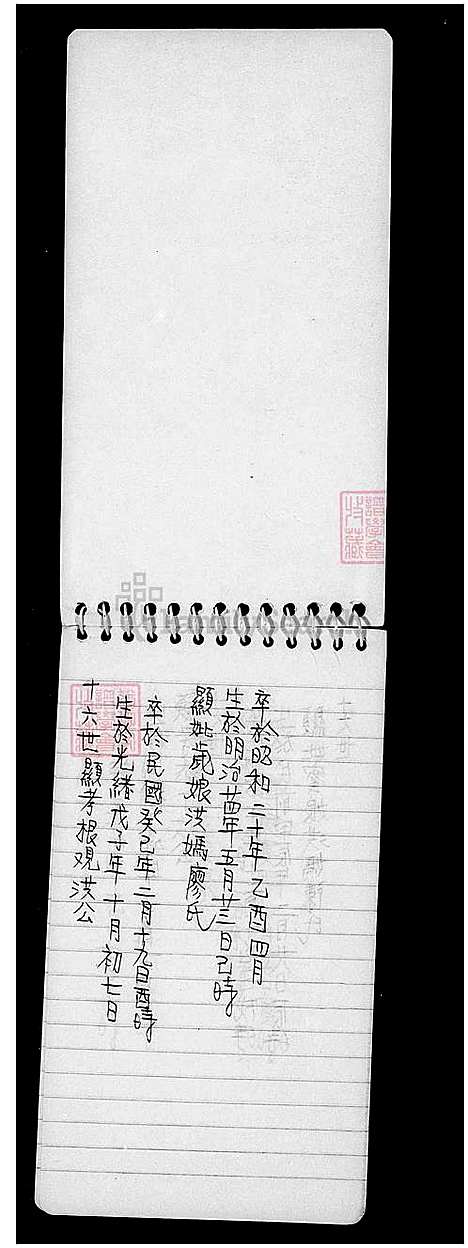 十六世顯考根观洪公
生於光緒戊子年十月初七日
卒於民國癸巳年二月十九日酉時
顯妣歲娘洪媽廖氏
生於明治廿四年五月廿三日巳時
卒於昭和二十年乙酉四月
譜學會
收藏